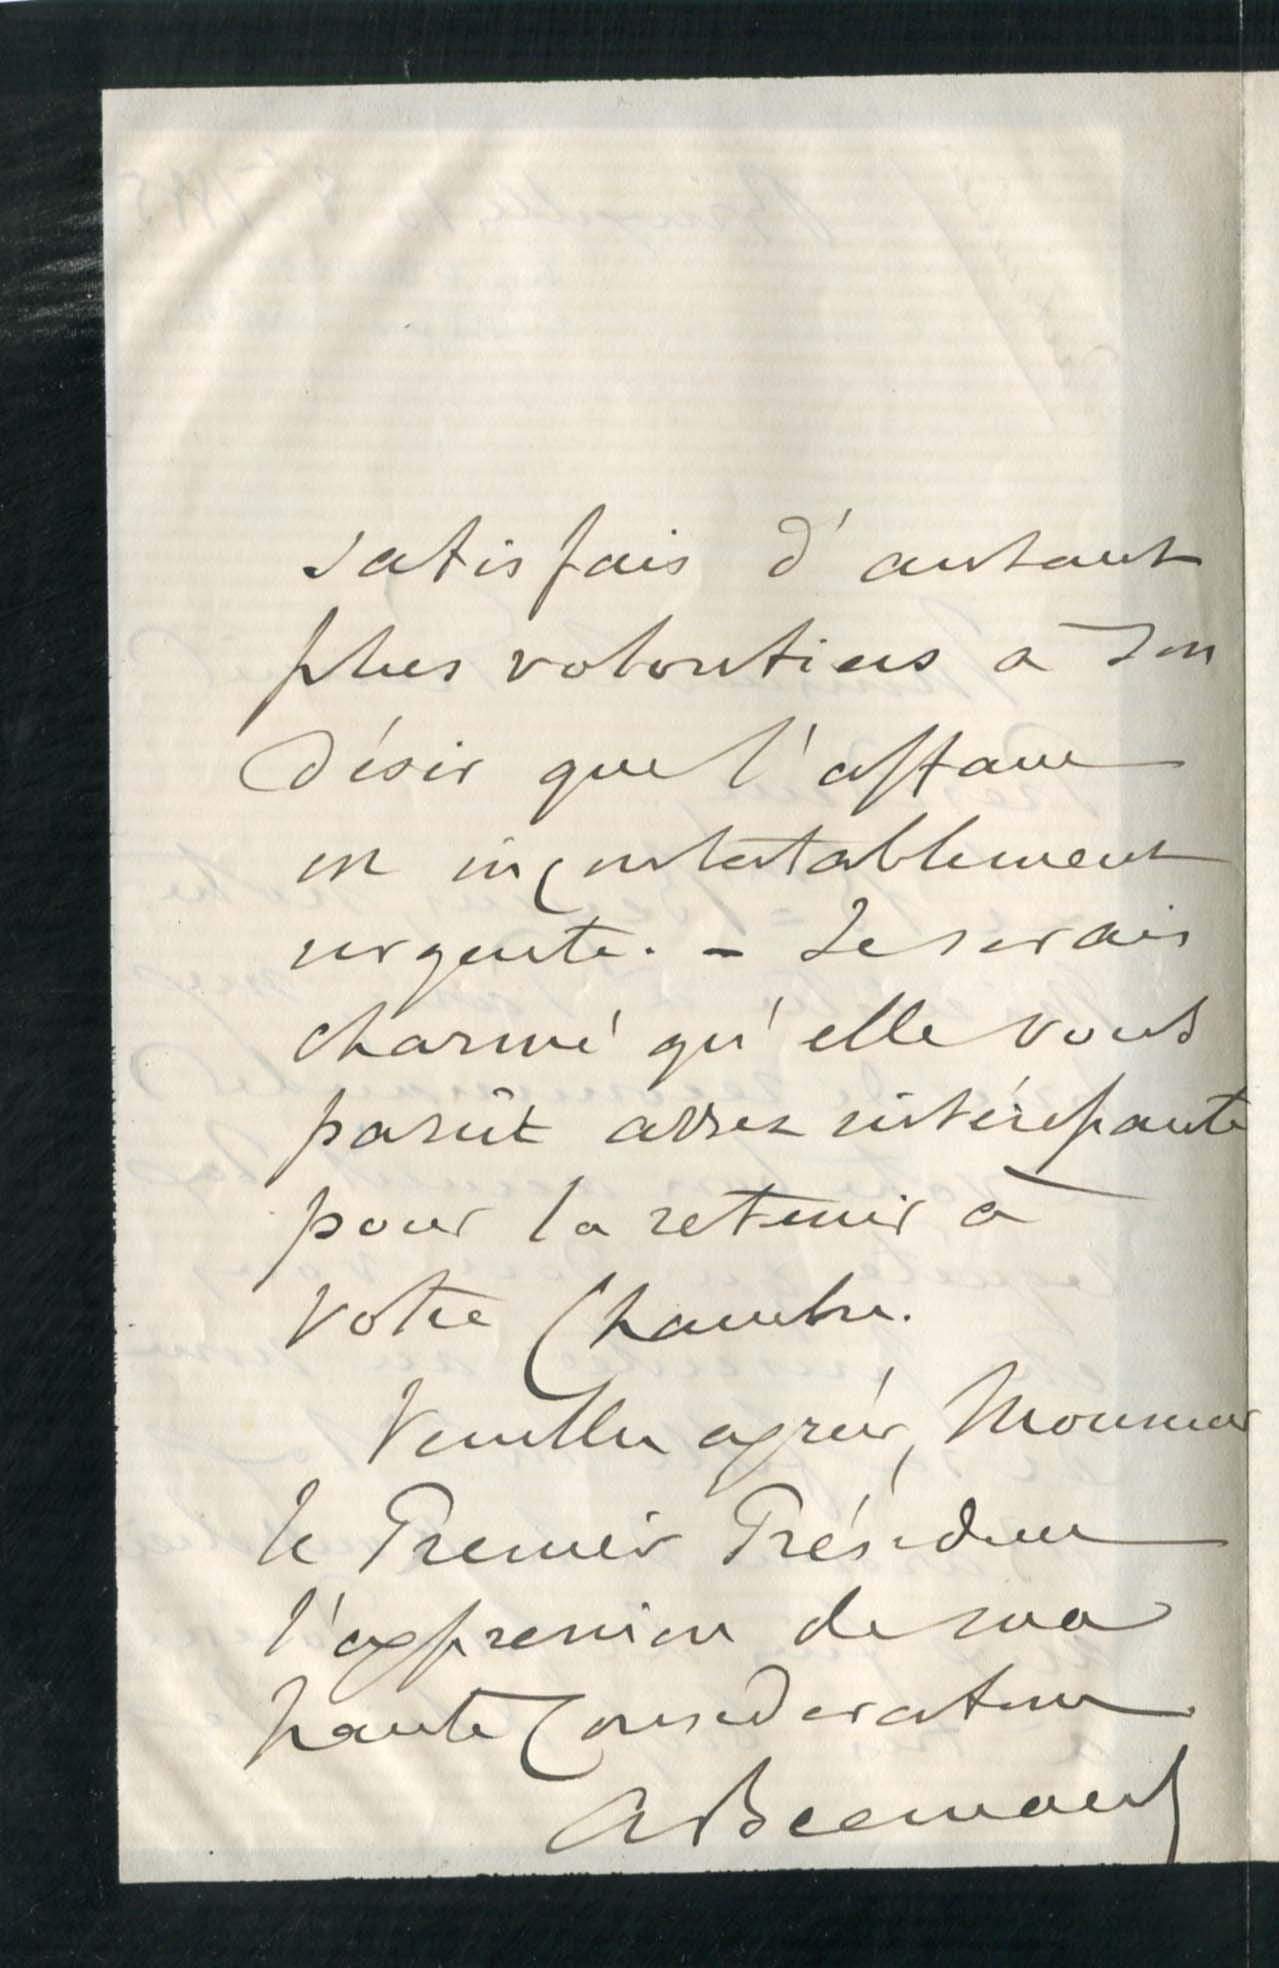 satisfais d'autant
plus volontiers à son
désir que l'affaire
est incontestablement
urgente. - Je serais
charmé qu'elle vous
parût assez intéressante
pour la retenir à
votre Chambre.
Veuillez agréer, Monsieur
le Premier Président
l'expression de ma
haute Considération.
A Beernaert